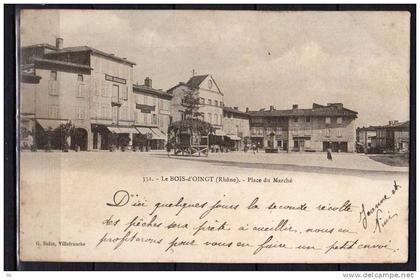 331. - Le BOIS-d'OINGT (Rhône). - Place du Marché
D'ici quelques jours la seconde récolte
des pêches sera prête à cueillir, nous en
profiterons pour vous en faire un petit envoi
Jeanne et
G. Balin, Villefranche